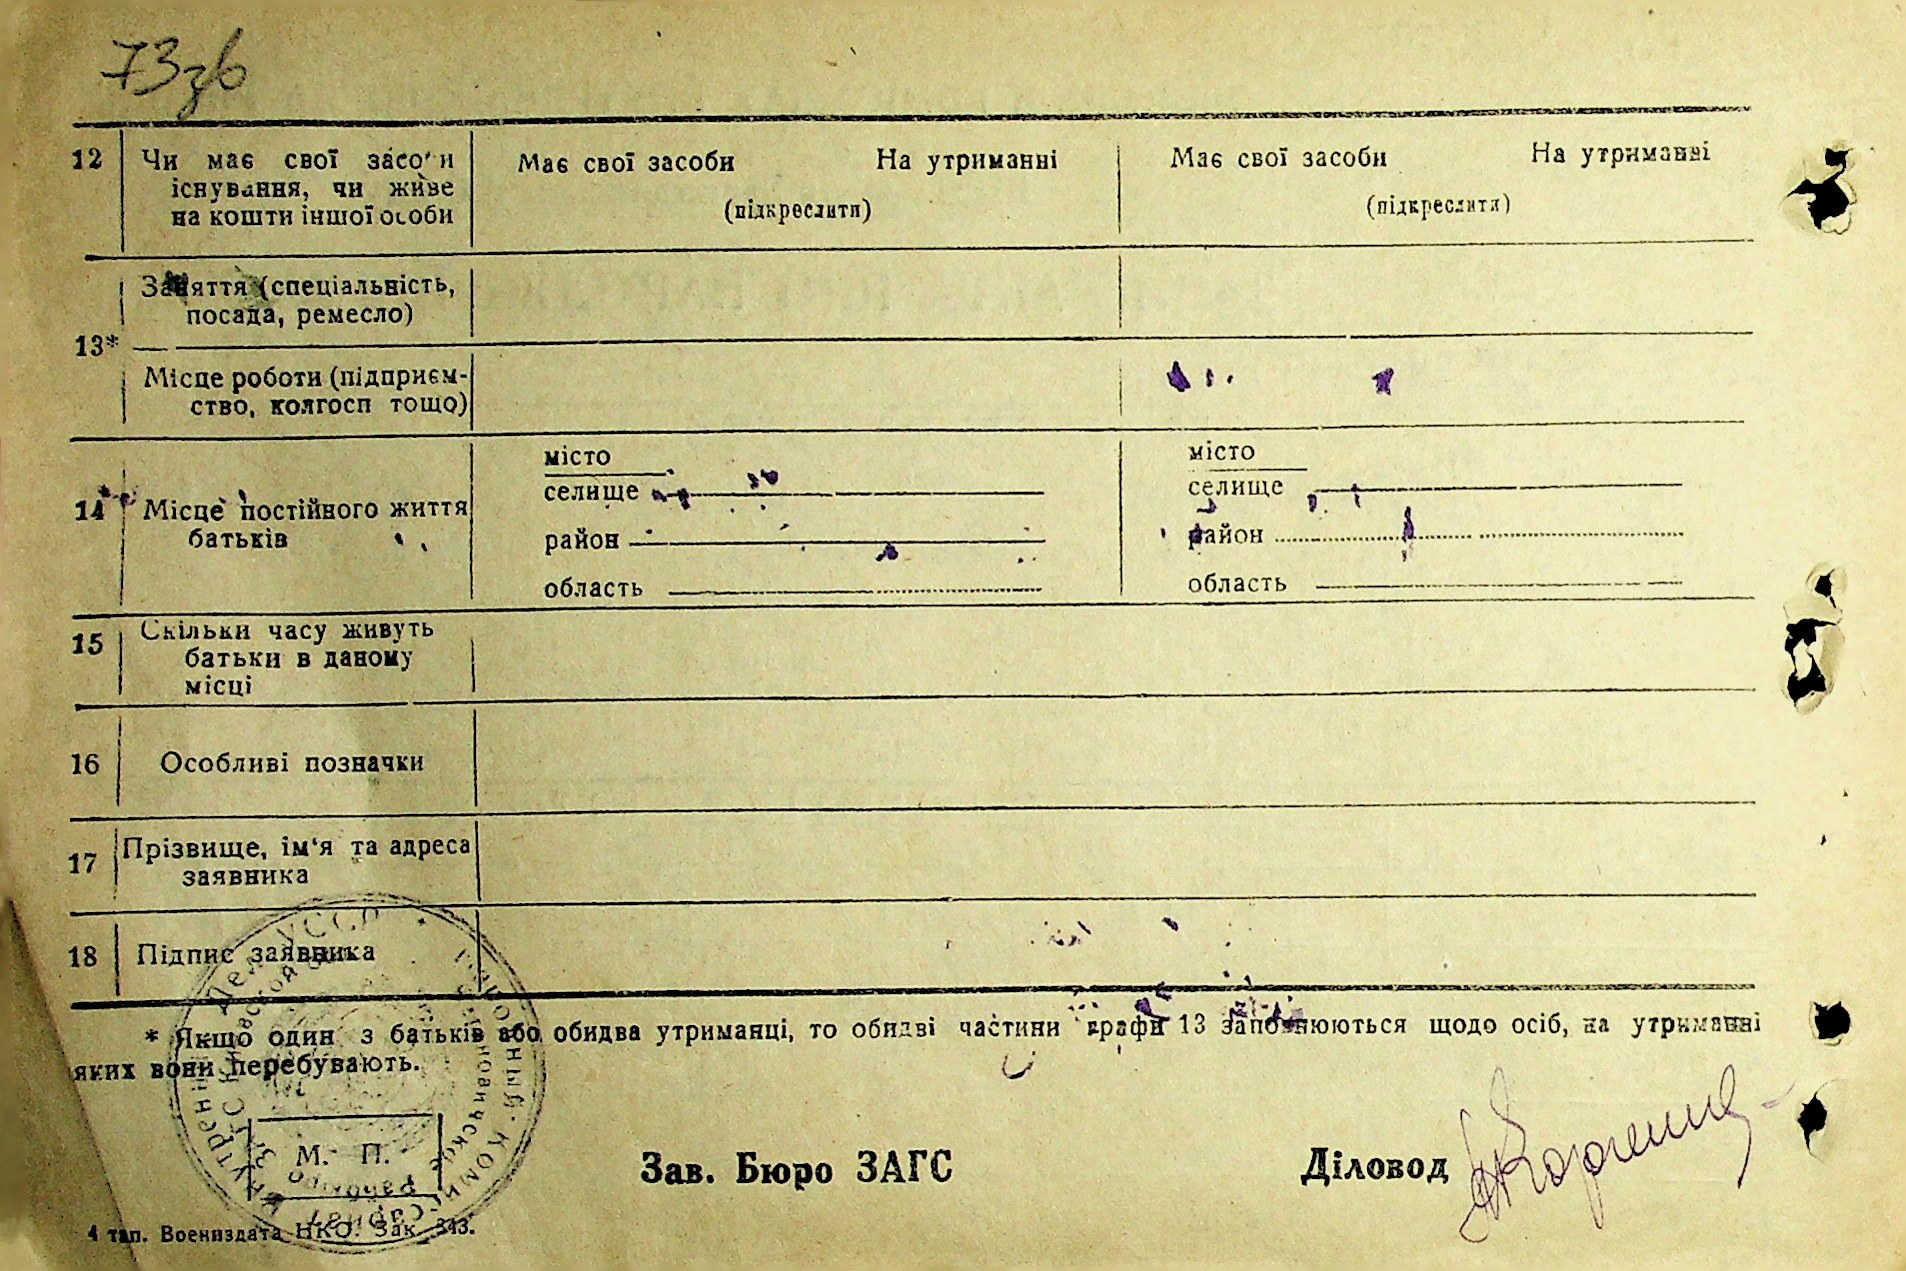 73зв
12 Чи має свої засоби Має свої засоби На утриманні Має свої засоби На утриманні
існування, чи живе
на кошти іншої особи (підкреслити) (підкреслити)
Заняття (спеціальність,
посада, ремесло)
13*
Місце роботи (підприєм-
ство, колгосп тощо)
місто місто
селище селище
14 Місце постійного життя
батьків
район район
область область
15 Скільки часу живуть
батьки в даному
місці
16 Особливі позначки
17 Прізвище, ім'я та адреса
заявника
18 Підпис заявника
* Якщо один з батьків або обидва утриманці, то обидві частини графи 13 заповнюються щодо осіб, на утриманні
яких вони перебувають.
М. П.
Зав. Бюро ЗАГС Діловод
4 тип. Воениздата НКО. Зак. 343.